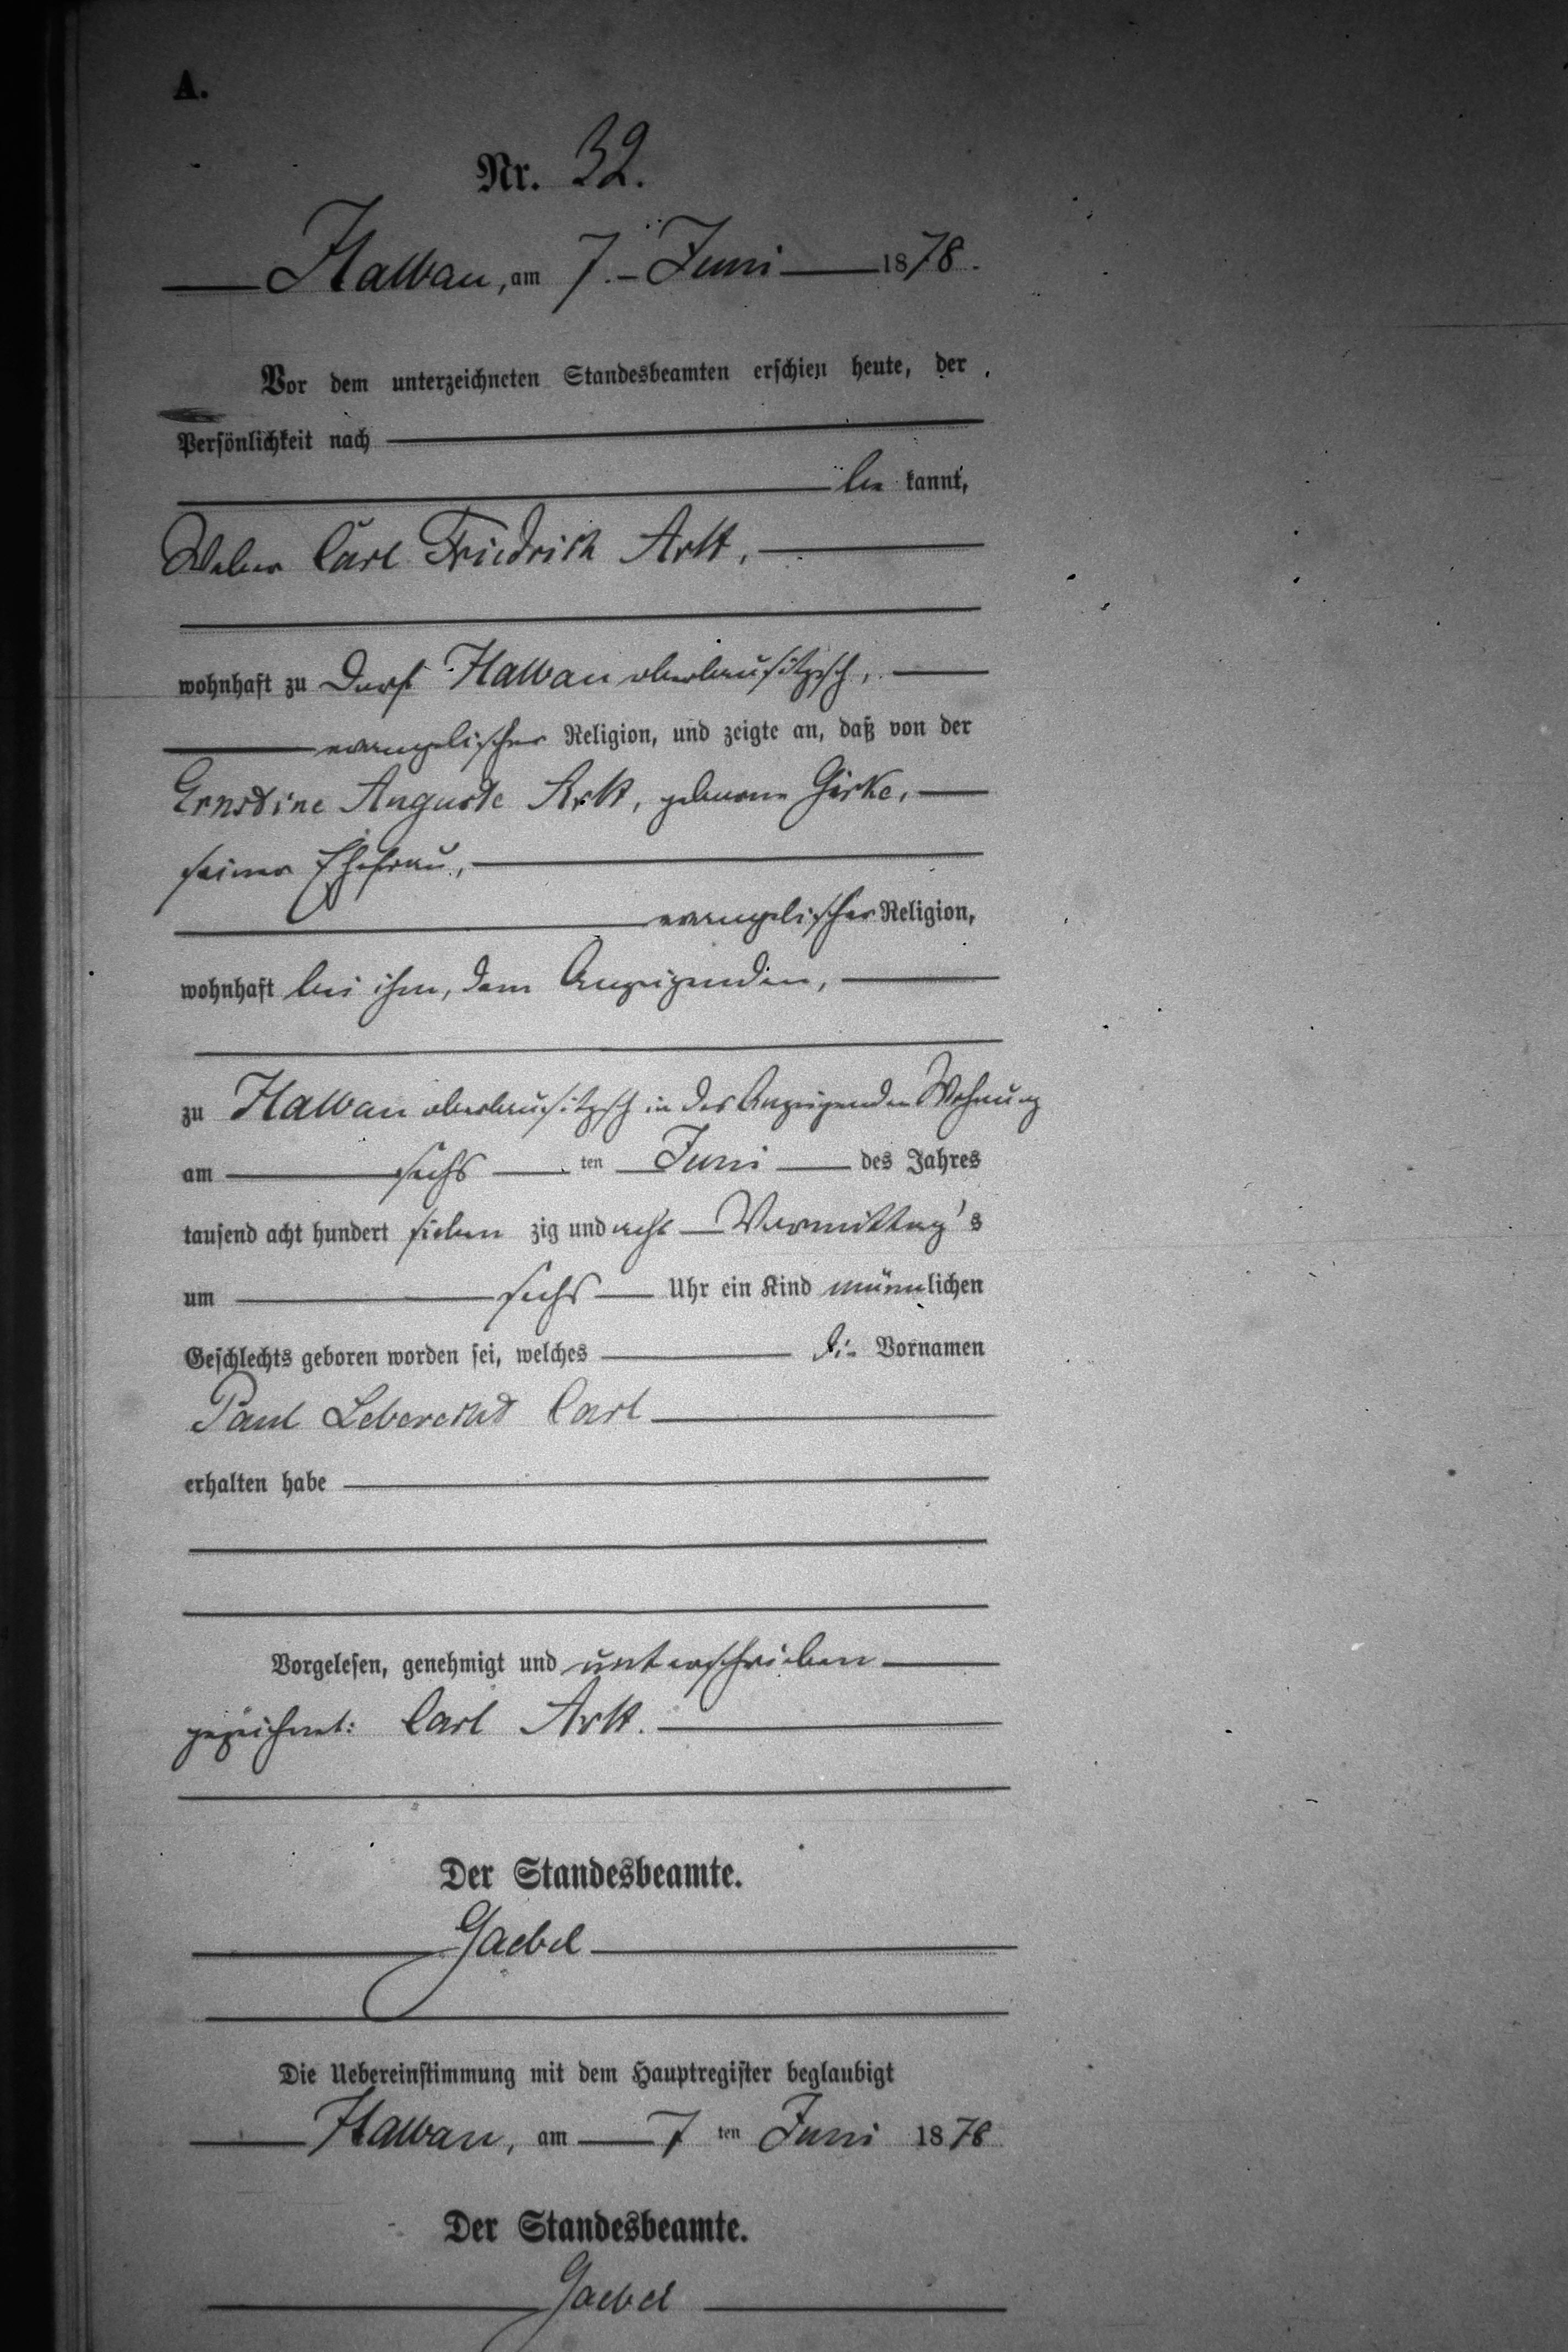 A.
Nr. 32.
Halbau, am 7. Juni 1878.
Vor dem unterzeichneten Standesbeamten erschien heute, der
Persönlichkeit nach
be kannt,
Weber Carl Friedrich Arlt,
wohnhaft zu Dorf Halbau oberlausitzisch,
evangelischer Religion, und zeigte an, daß von der
Ernstine Auguste Arlt, geborene Girke,
seiner Ehefrau,
evangelischer Religion,
wohnhaft bei ihm, dem Anzeigenden,
zu Halbau oberlausitzisch in des Anzeigenden Wohnung
am sechs ten Juni des Jahres
tausend acht hundert sieben zig und acht Vormittag's
um sechs Uhr ein Kind männlichen
Geschlechts geboren worden sei, welches die Vornamen
Paul Leberecht Carl
erhalten habe
Vorgelesen, genehmigt und unterschrieben
gezeichnet: Carl Arlt.
Der Standesbeamte.
Gaebel
Die Uebereinstimmung mit dem Hauptregister beglaubigt
Halbau, am 7 ten Juni 1878
Der Standesbeamte.
Gaebel